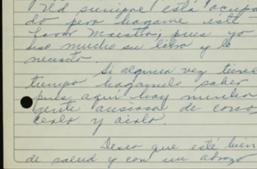 Ud siempre está ocupa
do pero hágame este
favor Maestro, pues yo
usé mucho su libro y lo
necesito
Si alguna vez tiene
tiempo hágamelo saber
pues aquí hay mucha
gente ansiosa de cono
cerlo y oirlo.
Deseo que esté bien
de salud y con un abrazo